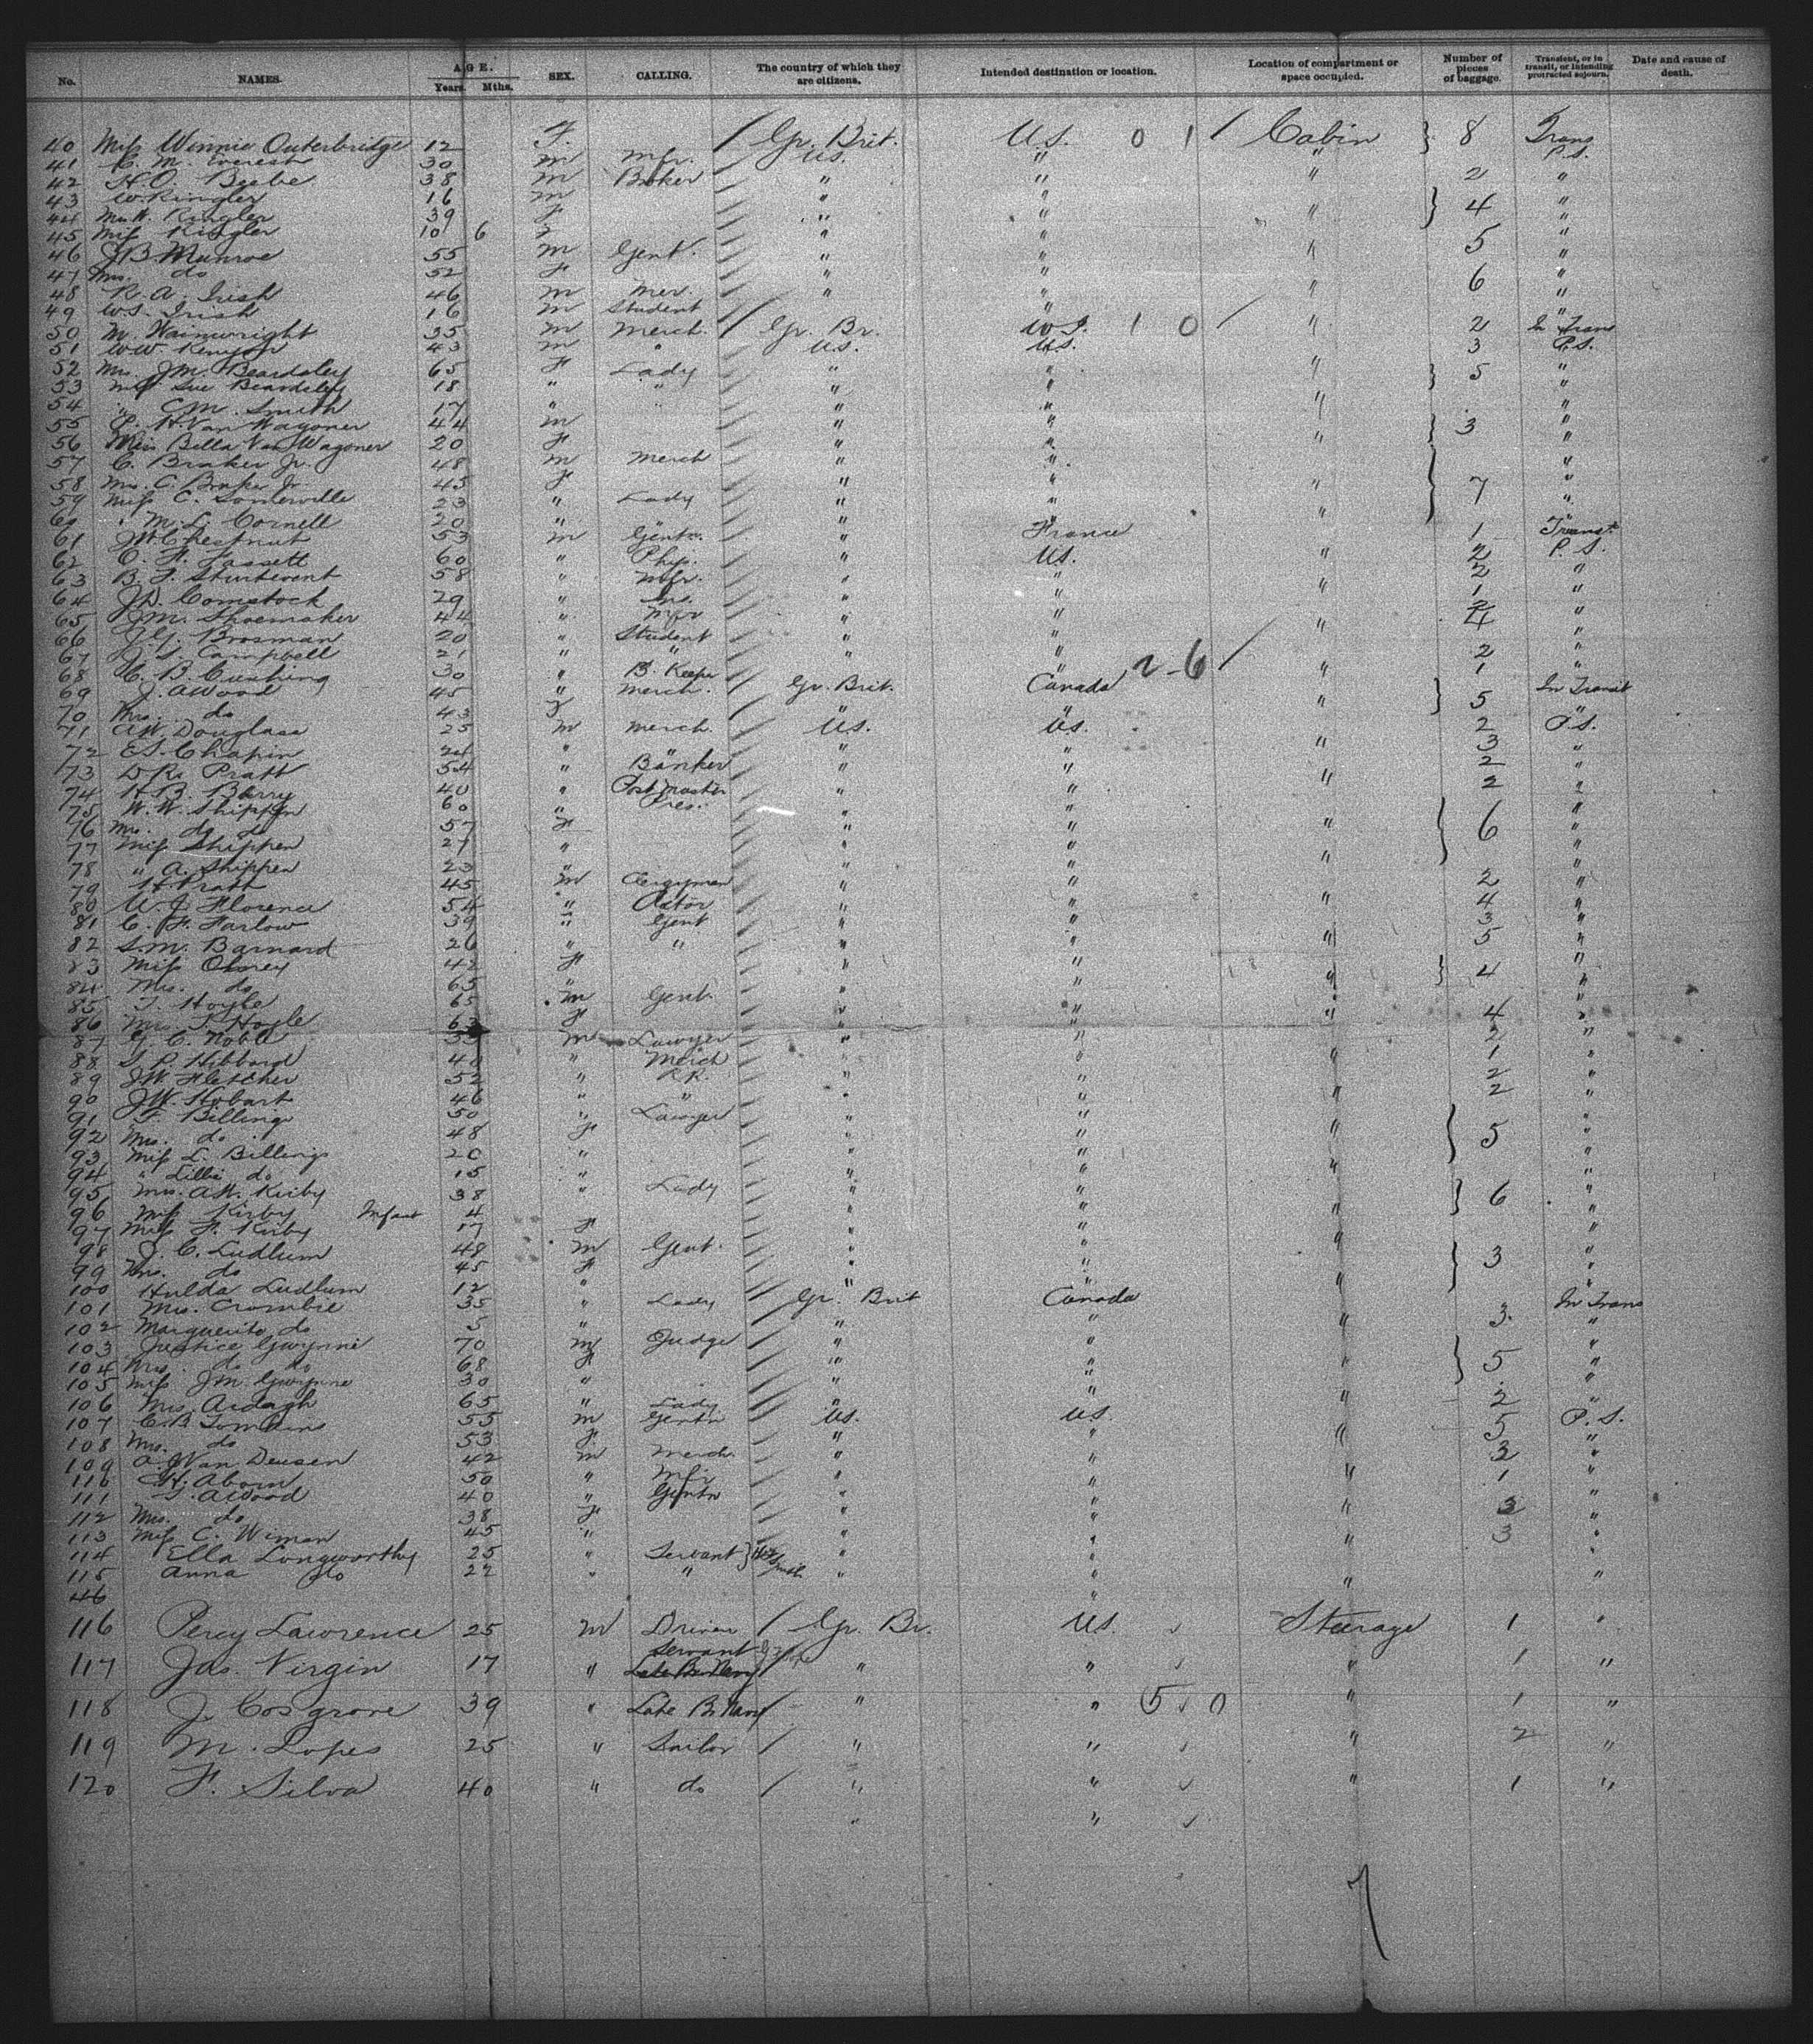 No. NAMES. AGE. Years. Mths. SEX. CALLING. The country of which they are citizens. Intended destination or location. Location of compartment or space occupied. Number of pieces of baggage. Transient, or in transit, or intending protracted sojourn. Date and cause of death.
40 Miss Winnie Outerbridge 12 F. / Gr. Brit. U.S. 0 1 / Cabin } 8 Trans
41 C. M. Everest 30 m Mfr. U.S. " " P.S.
42 H.O. Beebe 38 m Broker " " " 2 "
43 W. Ringler 16 m " " } 4 "
44 Mrs W. Ringler 39 F " " " "
45 Miss Ringler 10 6 F " " "
46 J.B. Munroe 55 m Gent. " " " 5 "
47 Mrs. do 52 F " " "
48 R. A. Irish 46 m Mer. " " " 6 "
49 W.S. Irish 16 m Student " "
50 M. Wainwright 35 m Merch. / Gr. Br. W.I. 1 0 / " 2 In Trans
51 W.W. Kenyon 43 m " U.S. U.S. 3 P.S.
52 Mrs. J.M. Beardsley 65 F Lady " " " } 5 "
53 Miss Sue Beardsley 18 " " " " "
54 " C.M. Smith 17 " " " " " "
55 P. H. Van Wagoner 44 m " " } 3 "
56 Miss Bella Van Wagoner 20 F " " " "
57 C. Braker Jr. 48 m Merch " " } 7 "
58 Mrs. C. Braker Jr. 45 F " " " "
59 Miss C. Somerville 23 " Lady " " "
60 " M. L. Cornell 20 " " " " "
61 J.W. Chestnut 53 m Gentn. " France 1 Transt
62 C. F. Fassett 60 " Phys. " U.S. " 2 P.S.
63 B. F. Sturtevent 58 " Mfr. " " 2 "
64 J.D. Comstock 29 " " " " 1 "
65 J.M. Shoemaker 44 " Mfr " " "
66 J.G. Brosman 20 " Student " " " "
67 J. S. Campbell 21 " " " " 2 "
68 C. B. Cushing 30 " B. Keeper " " 2-6 / " 1 "
69 J. A Wood 45 " Merch. / Gr. Brit. Canada " } 5 In Transit
70 Mrs. do 43 F / " " "
71 A.W. Douglass 25 m Merch. U.S. U.S. 2 P.S.
72 E.S. Chapin 24 " " " " " 3 "
73 D.R. Pratt 54 " Banker " " 2 "
74 H. B. Berry 40 " Post Master " " " 2 "
75 W. W. Shippen 60 " Pres. " " } 6 "
76 Mrs. do do 57 F " " " "
77 Miss Shippen 27 " " " "
78 " A. Shippen 23 " " " " "
79 H. Pratt 45 m Clergyman " " 2 "
80 W. J. Florence 54 " Actor " " " 4 "
81 C. F. Farlow 39 " Gent " " 3 "
82 S.M. Barnard 26 " " " " " 5 "
83 Miss 42 F " " } 4 "
84 Mrs. do 65 " " " " "
85 T. Hoyle 65 m Gent. " " "
86 Mrs. T. Hoyle 63 F " " " 4 "
87 G. C. Noble m Lawyer " 2 "
88 S. P. Hibbard 40 " Merch " " " 1 "
89 J.W. Fletcher 52 " R.R. " " 2 "
90 J.W. Hobart 46 " " " " " 2 "
91 F. Billings 50 " Lawyer " " } 5 "
92 Mrs. do 48 F " " " "
93 Miss L. Billings 20 " " " "
94 " Lilli do 15 " " " " "
95 Mrs. A.H. Kirby 38 " Lady " " } 6 "
96 Miss Kirby Infant 4 " " " "
97 Miss F. Kirby 17 F " " "
98 J. C. Ludlum 48 m Gent. " " " } 3 "
99 Mrs. do 45 F " " "
100 Hulda Ludlum 12 " " " " "
101 Mrs. Crombie 35 " Lady Gr. Brit Canada 3. In Trans
102 Marguerite do 5 " " " " "
103 Justice Gwynne 70 m Judge " " } 5 "
104 Mrs. do do 68 F " " " "
105 Miss J.M. Gwynne 30 " " " "
106 Mrs. Ardagh 65 " Lady " " " 2 "
107 C.B. Tomkins 55 m Gentn U.S. U.S. 5 P.S.
108 Mrs. do 53 F " " " "
109 A. J Van Deusen 42 m Merch. " " 3 "
110 H. Aborn 50 " Mfr " " " 1 "
111 S. A Wood 40 " Gentn " " "
112 Mrs. do 38 F " " " 3 "
113 Miss C. Wiman 45 " " " 3 "
114 Ella Longworthy 25 " Servant } " " " "
115 Anna do 22 " " " " " "
46 "
116 Percy Lawrence 25 m Driver / Gr. Br. U.S. ✓ Steerage 1 "
117 Jas. Virgin 17 " Servant Late Br. Navy / " " ✓ " 1 "
118 J. Cosgrove 39 " Late Br. Navy / " " 5 ✓ 0 " 1 "
119 M. Lopes 25 " Sailor / " " ✓ " 2 "
120 F. Silva 40 " do / " " ✓ " 1 "
" " ✓